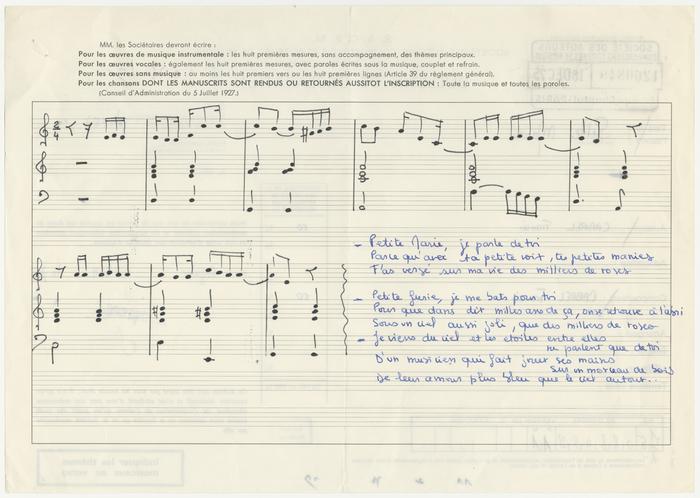 MM. les Sociétaires devront écrire :
Pour les œuvres de musique instrumentale : les huit premières mesures, sans accompagnement, des thèmes principaux.
Pour les œuvres vocales : également les huit premières mesures, avec paroles écrites sous la musique, couplet et refrain.
Pour les œuvres sans musique : au moins les huit premiers vers ou les huit premières lignes (Article 39 du règlement général).
Pour les chansons DONT LES MANUSCRITS SONT RENDUS OU RETOURNÉS AUSSITOT L'INSCRIPTION : Toute la musique et toutes les paroles.
(Conseil d'Administration du 5 Juillet 1927.)
2/4
- Petite Marie, je parle de toi
Parce qu'avec ta petite voix, tes petites manies
T'as versé sur ma vie des milliers de roses
- Petite furie, je me bats pour toi
Pour que dans dix mille ans de ça, on se retrouve à l'abri
Sous un ciel aussi joli, que des milliers de roses
- Je viens du ciel et les étoiles entre elles
ne parlent que de toi
D'un musicien qui fait jouer ses mains
sur un morceau de bois
De leur amour plus bleu que le ciel autour...
indiquer les thèmes
musicaux au verso